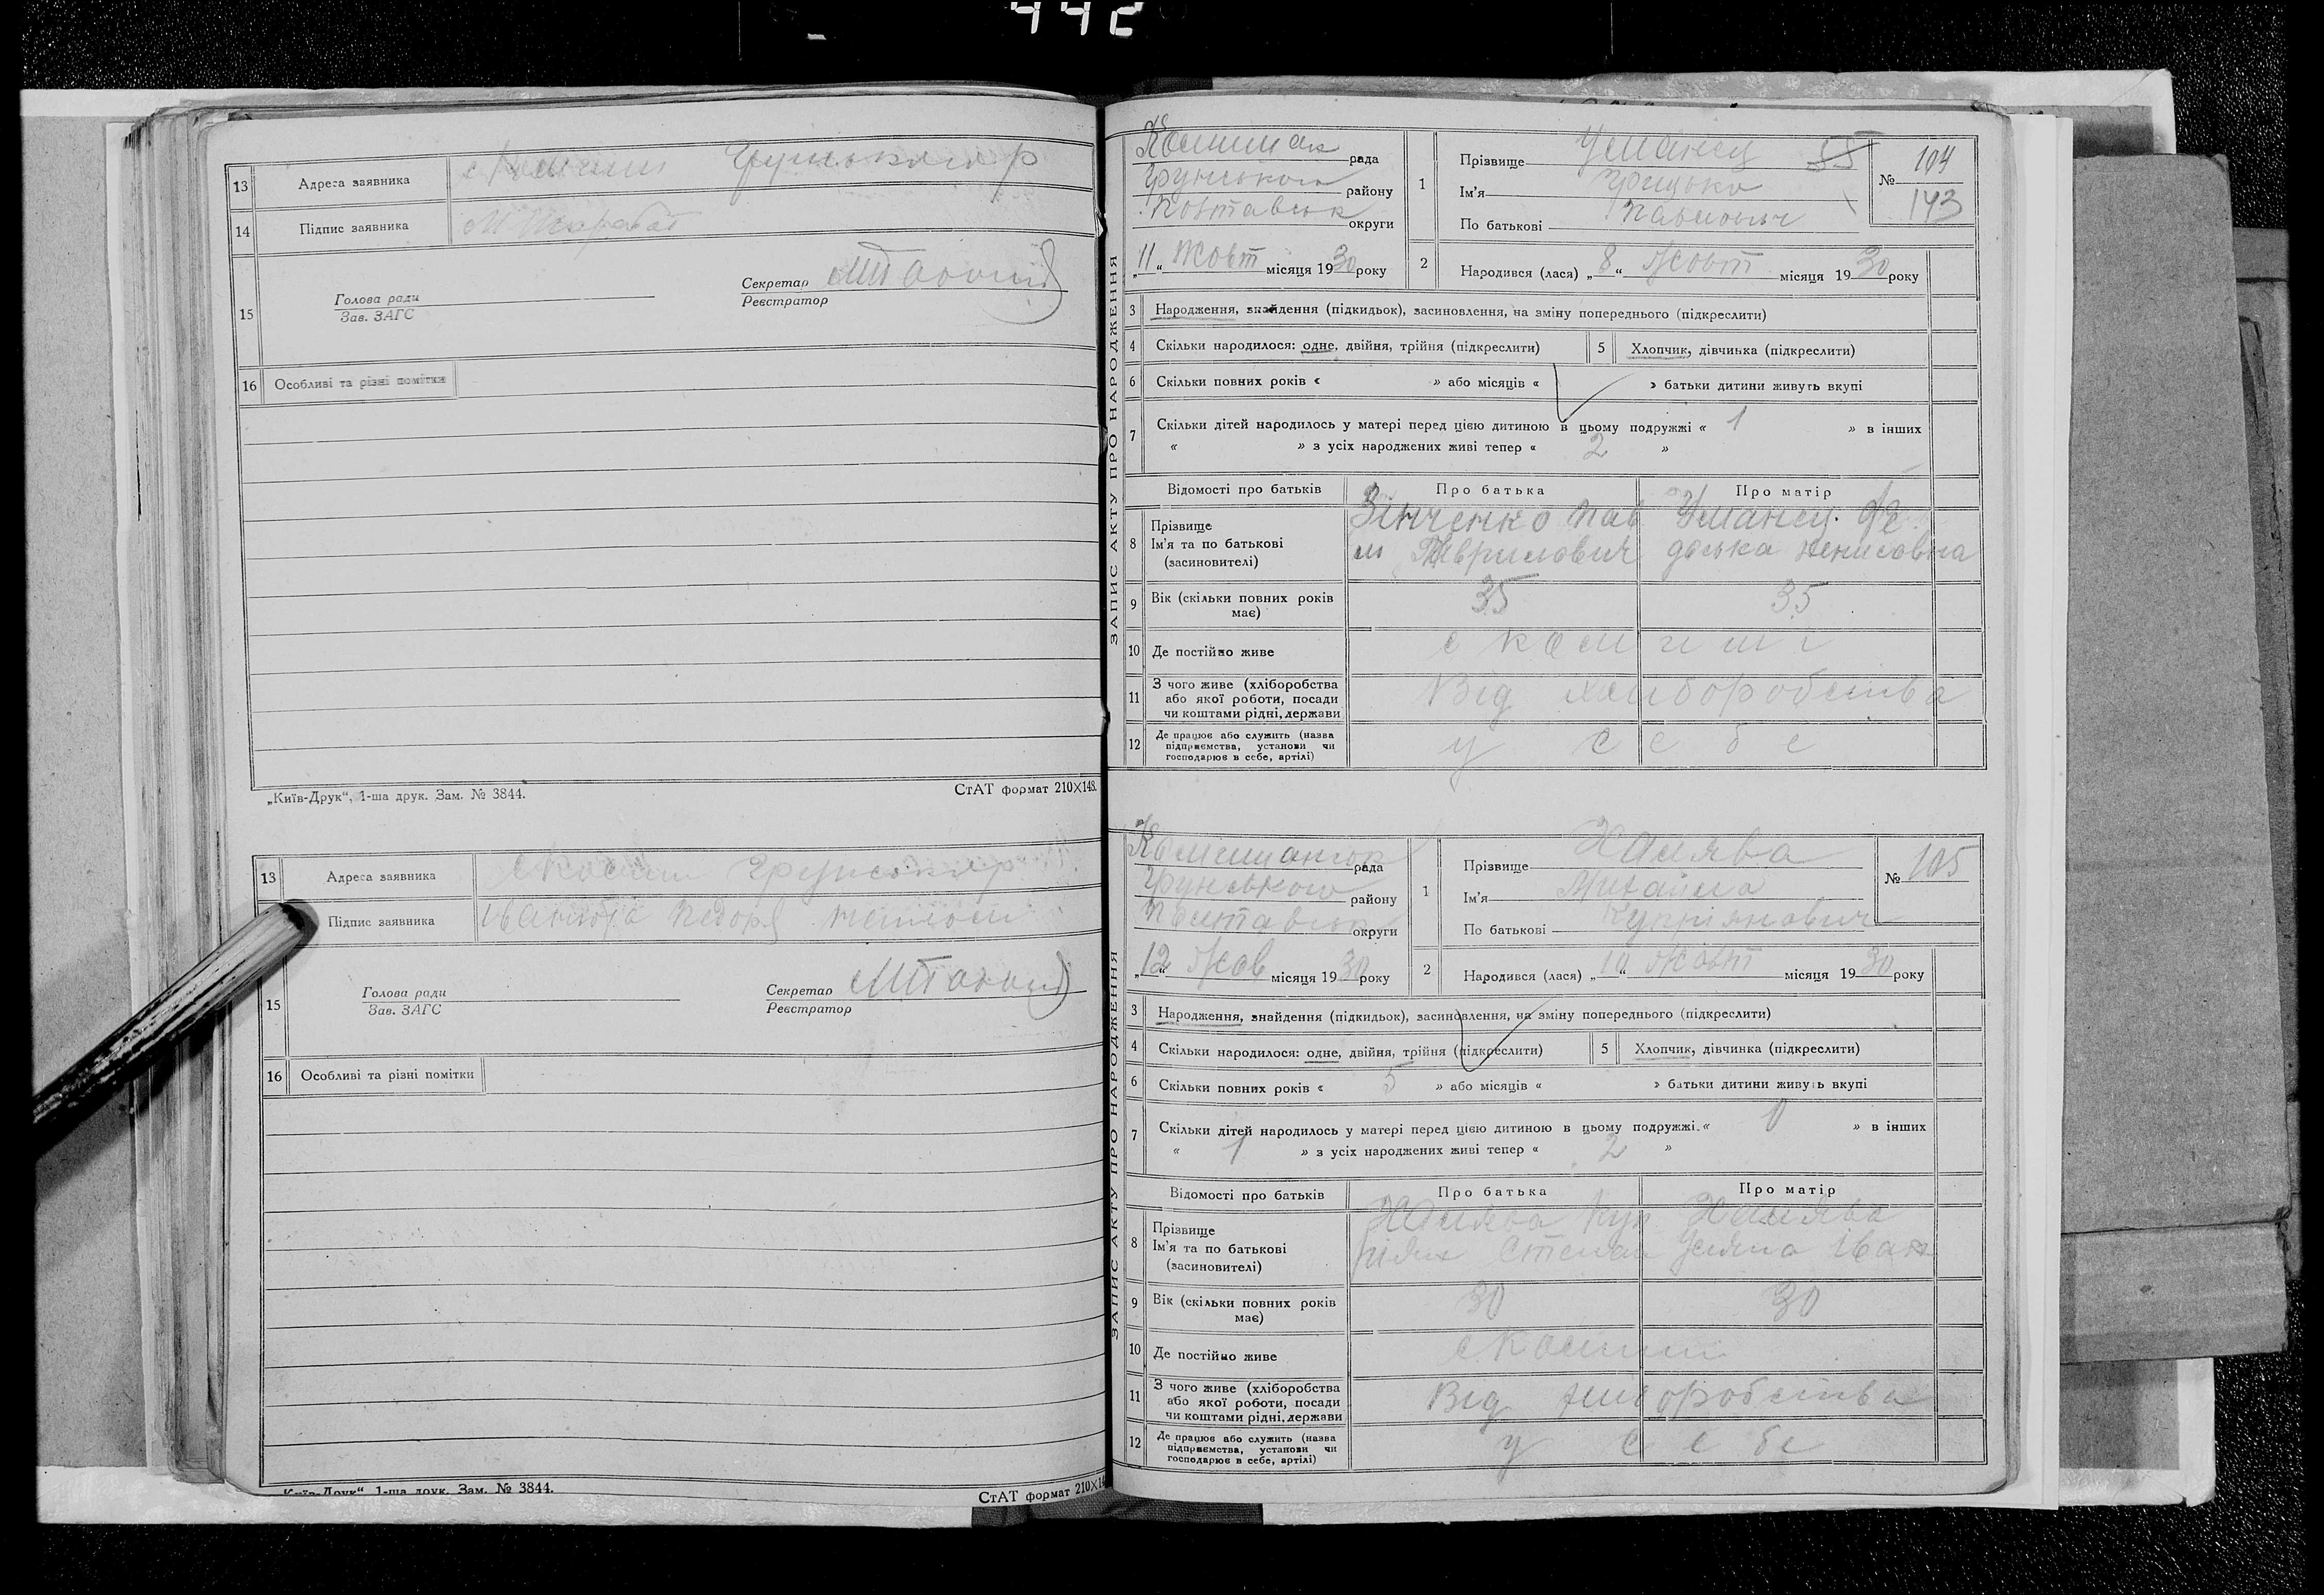 442
13 Адреса заявника
14 Підпис заявника М
15 Голова ради
Зав. ЗАГС
Секретар
Реєстратор
16 Особливі та різні помітки
„Київ-Друк“, 1-ша друк. Зам. № 3844.
СтАТ формат 210X148.
13 Адреса заявника
Підпис заявника
15 Голова ради
Зав. ЗАГС
Секретар
Реєстратор
16 Особливі та різні помітки
Київ-Друк“, 1-ша друк. Зам. № 3844.
СтАТ формат 210X14
ЗАПИС АКТУ ПРО НАРОДЖЕННЯ
рада
Грунського району
Полтавськ округи
„11“ Жовт місяця 1930 року
1 Прізвище Уманец 55
Ім'я Грицько
По батькові Павлович
№ 104
143
2 Народився (лася) „8“ Жовт місяця 1930 року
3 Народження, знайдення (підкидьок), засиновлення, на зміну попереднього (підкреслити)
4 Скільки народилося: одне, двійня, трійня (підкреслити)
5 Хлопчик, дівчинка (підкреслити)
6 Скільки повних років « » або місяців « » батьки дитини живуть вкупі
7 Скільки дітей народилось у матері перед цією дитиною в цьому подружжі « 1 » в інших
« » з усіх народжених живі тепер « 2 »
Відомості про батьків Про батька Про матір
8 Прізвище
Ім'я та по батькові
(засиновителі)
Зінченко Пав
л Гаврилович
Уманец
9 Вік (скільки повних років має) 35 35
10 Де постійно живе
11 З чого живе (хліборобства або якої роботи, посади чи коштами рідні, держави Від хліборобства
12 Де працює або служить (назва підприємства, установи чи господарює в себе, артілі) у себе
ЗАПИС АКТУ ПРО НАРОДЖЕННЯ
рада
Грунського району
Полтавськ округи
„12“ Жов місяця 1930 року
1 Прізвище Халява
Ім'я Михайло
По батькові Купріянович
№ 105
2 Народився (лася) „10“ Жовт місяця 1930 року
3 Народження, знайдення (підкидьок), засиновлення, на зміну попереднього (підкреслити)
4 Скільки народилося: одне, двійня, трійня (підкреслити)
5 Хлопчик, дівчинка (підкреслити)
6 Скільки повних років « 5 » або місяців « » батьки дитини живуть вкупі
7 Скільки дітей народилось у матері перед цією дитиною в цьому подружжі « 0 » в інших
« 1 » з усіх народжених живі тепер « 2 »
Відомості про батьків Про батька Про матір
8 Прізвище
Ім'я та по батькові
(засиновителі)
Халява Куп
ріян Степан
Халява
Уляна Іван
9 Вік (скільки повних років має) 30 30
10 Де постійно живе
11 З чого живе (хліборобства або якої роботи, посади чи коштами рідні, держави Від хліборобства
12 Де працює або служить (назва підприємства, установи чи господарює в себе, артілі) у себе